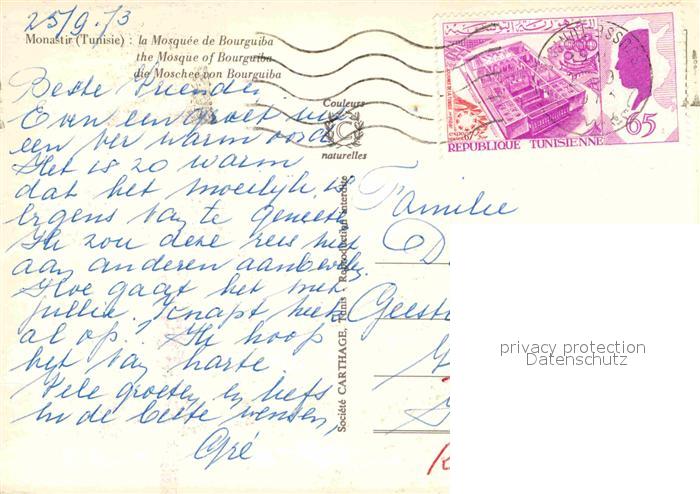 25/9.73
Monastir (Tunisie) : la Mosquée de Bourguiba
the Mosque of Bourguiba
die Moschee von Bourguiba
Couleurs
C
naturelles
REPUBLIQUE TUNISIENNE
65
Beste Vrienden
Even een groet uit
een ver warm oord.
Het is zo warm
dat het moeilijk is
Ergens van te genieten
Ik zou deze reis niet
aan anderen aanbevelen.
Hoe gaat het met
jullie. Knapt Henk
al op? Ik hoop
het van harte.
Vele groeten en liefs
en de beste wensen,
Gré
Société CARTHAGE, Tunis - Reproduction interdite
Familie
D
Geest
privacy protection
Datenschutz